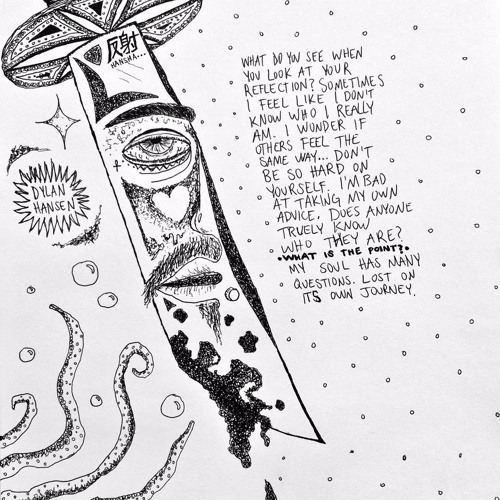 反射
HANSHA...
DYLAN
HANSEN
WHAT DO YOU SEE WHEN
YOU LOOK AT YOUR
REFLECTION? SOMETIMES
I FEEL LIKE I DON'T
KNOW WHO I REALLY
AM. I WONDER IF
OTHERS FEEL THE
SAME WAY... DON'T
BE SO HARD ON
YOURSELF. I'M BAD
AT TAKING MY OWN
ADVICE. DOES ANYONE
TRUELY KNOW
WHO THEY ARE?
•WHAT IS THE POINT?•
MY SOUL HAS MANY
QUESTIONS. LOST ON
ITS OWN JOURNEY.